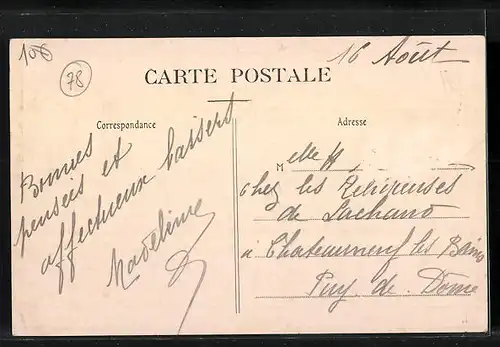 108
78
16 Août
CARTE POSTALE
Correspondance
Adresse
Bonnes
pensées et
affectueux baisers
Madeleine
Melle H
chez les
de Lachand
à Chateauneuf les Bains
Puy. de. Dome